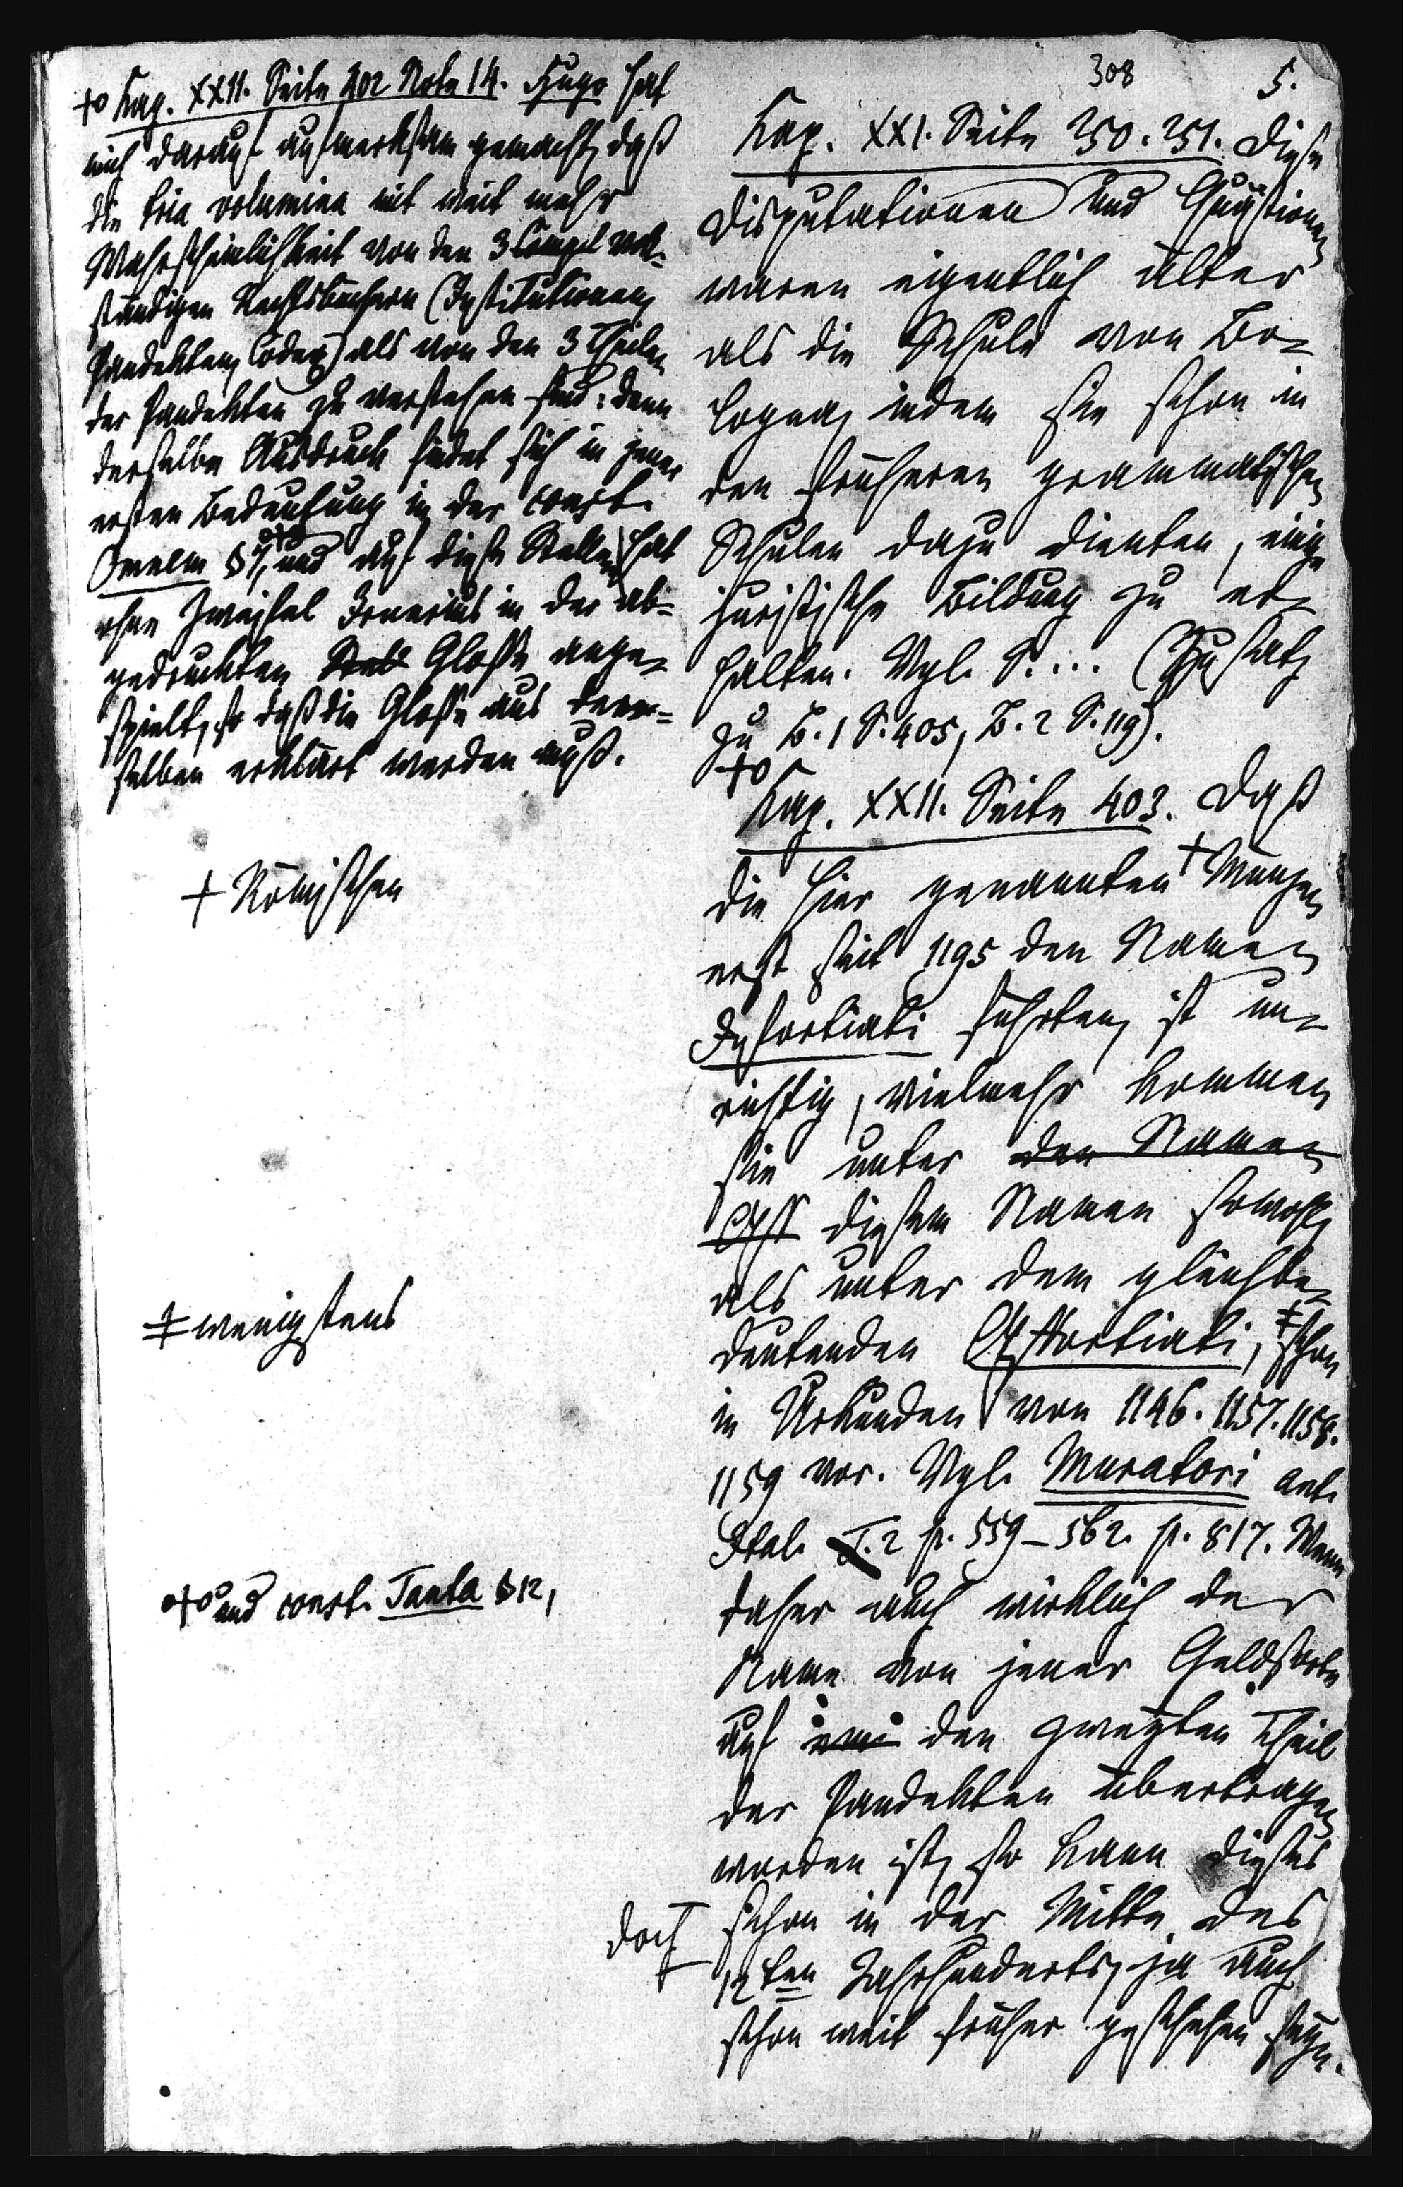 308
5.
+o Kap. XXII. Seite 402 Note 14. Hugo hat
mich darauf aufmerksam gemacht, daß
die tria volumina mit weit mehr
Wahrscheinlichkeit von den 3 voll-
ständigen Rechtsbüchern (Institutionen,
Pandekten, Codex) als von den 3 Theilen
der Pandekten zu verstehen sind: denn
derselbe Ausdruck findet sich in jener
ersten Bedeutung in der const.
Omnem § 7, o+o und auf diese Stellen hat
ohne Zweifel Irnerius in der ab-
gedruckten Glosse ange-
spielt, so daß die Glosse aus dem-
selben erklärt werden muß.
+ Römischen
‡ wenigstens
o+o und const. Tanta § 12,
doch
Kap. XXI. Seite 350. 351. Diese
Disputationen und Quästionen
waren eigentlich älter
als die Schule von Bo-
logna, indem sie schon in
den früheren grammatischen
Schulen dazu dienten, einige
juristische Bildung zu er-
halten. Vgl. S. ... (Zusatz
zu B. 1 S. 405, B. 2 S. 119).
+o
Kap. XXII. Seite 403. Daß
die hier genannten + Münzen
erst seit 1195 den Namen
Infortiati führten, ist un-
richtig, vielmehr kommen
sie unter den Namen
diesem Namen sowohl,
als unter dem gleichbe-
deutenden Affortiati, ‡ schon
in Urkunden von 1146. 1157. 1158.
1159 vor. Vgl. Muratori ant.
Ital. T. 2 p. 559-562. p. 817. Wenn
daher auch wirklich der
Name von jener Geldsorte
auf den zweyten Theil
der Pandekten übertragen
worden ist, so kann dieses
schon in der Mitte des
12ten Jahrhunderts, ja auch
schon weit früher geschehen seyn.